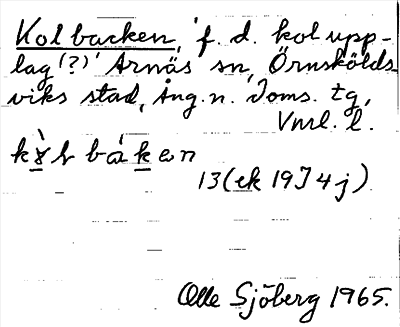 Kolbacken, 'f. d. kolupp-
lag (?)' Arnäs sn, Örnskölds-
viks stad, Ång. n. Doms. tg,
Vnrl. l.
bàken
13 (ek 19J4j)
Olle Sjöberg 1965.